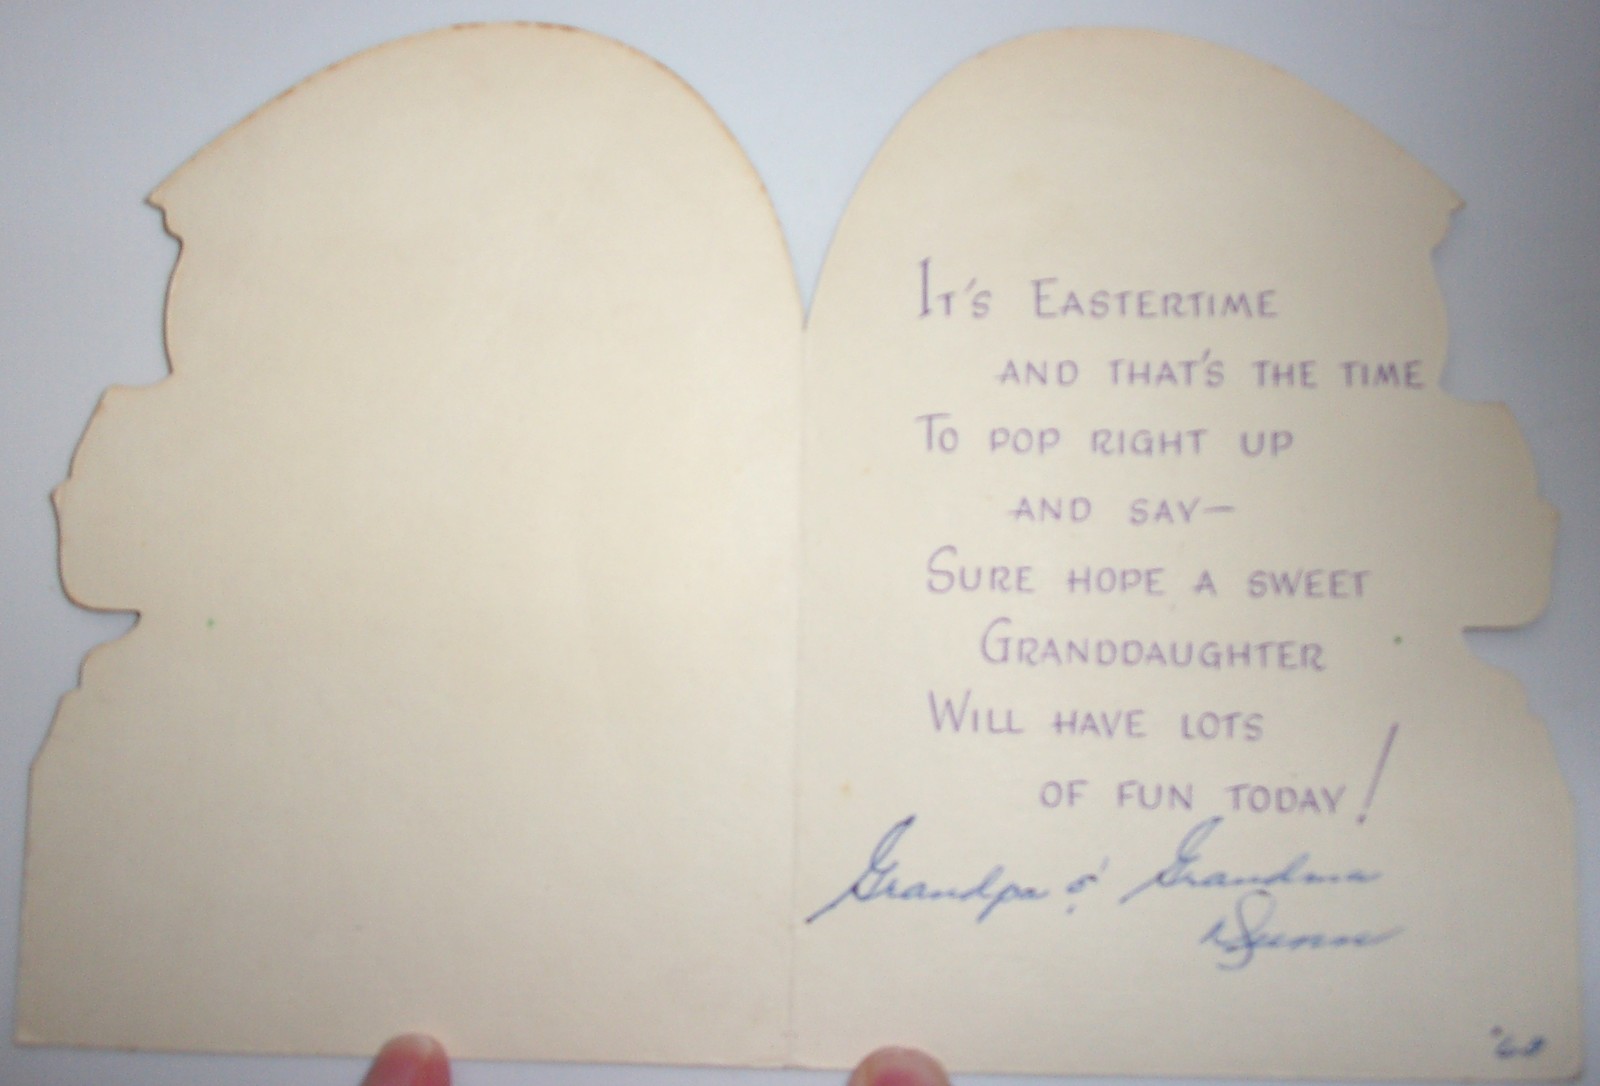 It's Eastertime
and that's the time
To pop right up
and say—
Sure hope a sweet
Granddaughter
Will have lots
of fun today!
Grandpa & Grandma